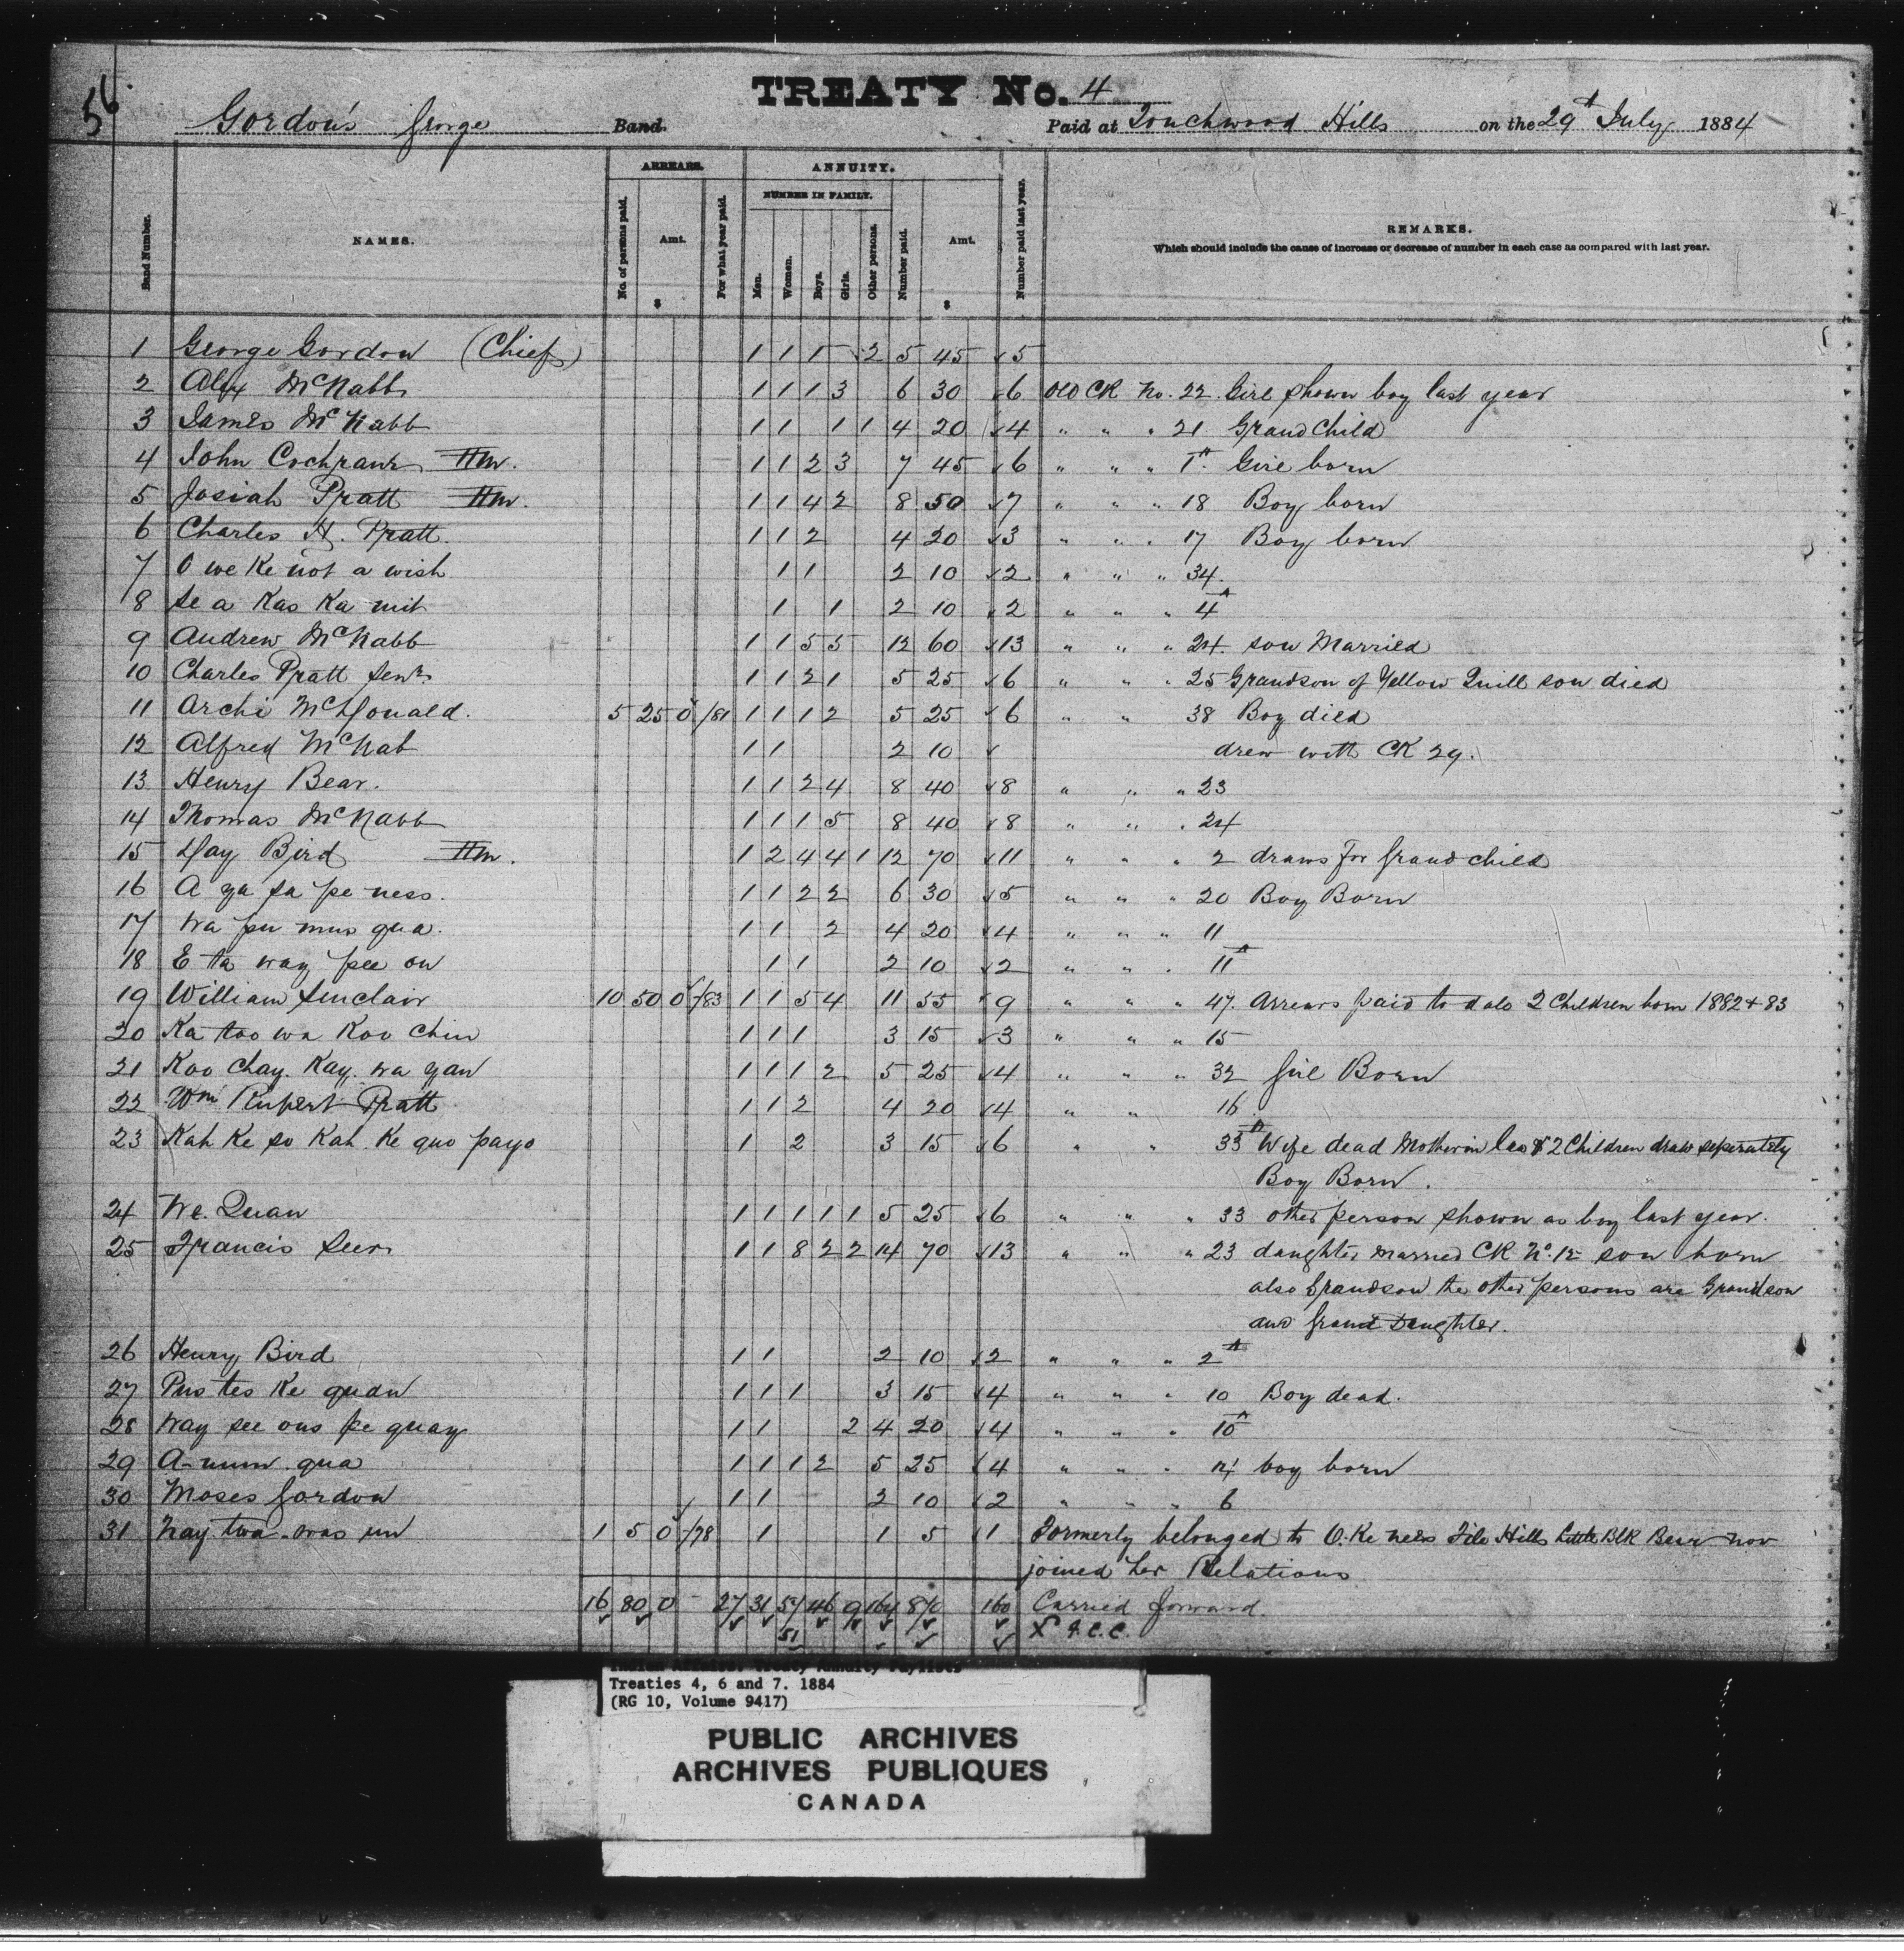 56
TREATY No. 4
Gordon's George Band. Paid at Touchwood Hills on the 29th July 1884
ARREARS. ANNUITY.
NUMBER IN FAMILY.
Band Number. NAMES. No. of persons paid. Amt. $ For what year paid. Men. Women. Boys. Girls. Other persons. Number paid. Amt. $ Number paid last year. REMARKS.
Which should include the cause of increase or decrease of number in each case as compared with last year.
1 George Gordon (Chief) 1 1 1 2 5 45 5
2 Alex McNabb 1 1 1 3 6 30 6 Old CK No. 22 Girl shown boy last year
3 James McNabb 1 1 1 1 4 20 4 " " " 21 Grand Child
4 John Cochrane Hm. 1 1 2 3 7 45 6 " " " 1A Girl born
5 Josiah Pratt Hm. 1 1 4 2 8 50 7 " " " 18 Boy born
6 Charles H. Pratt 1 1 2 4 20 3 " " " 17 Boy born
7 O we ke not a wish 1 1 2 10 2 " " " 34
8 Se a Kas Ka mit 1 1 2 10 2 " " " 4A
9 Andrew McNabb 1 1 5 5 12 60 13 " " " 24 son Married
10 Charles Pratt Senr. 1 1 2 1 5 25 6 " " " 25 Grandson of Yellow Quill son died
11 Archi McDonald. 5 25 0 /81 1 1 1 2 5 25 6 " " 38 Boy died
12 Alfred McNab 1 1 2 10 drew with CK 29.
13 Henry Bear. 1 1 2 4 8 40 8 " " " 23
14 Thomas McNabb 1 1 1 5 8 40 8 " " " 24
15 Day Bird Hm. 1 2 4 4 1 12 70 11 " " " 2 draws for Grand child
16 A ya sa pe ness. 1 1 2 2 6 30 5 " " " 20 Boy Born
17 Wa pu mus qua. 1 1 2 4 20 4 " " " 11
18 E ta way pee on 1 1 2 10 2 " " " 11A
19 William Sinclair 10 50 0 /83 1 1 5 4 11 55 9 " " " 47. Arrears paid to dale 2 Children born 1882 & 83
20 Ka too wa Koo Chin 1 1 1 3 15 3 " " " 15
21 Koo Chay. Kay. wa yan 1 1 1 2 5 25 4 " " " 32 Girl Born
22 Wm Rupert Pratt 1 1 2 4 20 4 " " 16
23 Kah Ke so Kah. Ke quo payo 1 2 3 15 6 " " 33A Wife dead Mother in law & 2 Children draw seperately
Boy Born.
24 We. Quan 1 1 1 1 1 5 25 6 " " " 33 other person shown as boy last year.
25 Francis Seer 1 1 8 2 2 14 70 13 " " " 23 daughter married CK No. 12 son born
also Grandson the other persons are Grandson
and Grand Daughter.
26 Henry Bird 1 1 2 10 2 " " " 2A
27 Pus tes Ke quan 1 1 1 3 15 4 " " " 10 Boy dead.
28 Way see ous pe quay 1 1 2 4 20 4 " " " 10A
29 A-num. qua 1 1 1 2 5 25 4 " " " 14 boy born
30 Moses Gordon 1 1 2 10 2 " " " 6
31 Nay twa-was un 1 5 0 /78 1 1 5 1 Formerly belonged to O. Ke nees File Hills Little Blk Bear now
joined her Relations
16 80 0 27 31 51 46 9 164 870 160 Carried forward.
51
Treaties 4, 6 and 7. 1884
(RG 10, Volume 9417)
PUBLIC ARCHIVES
ARCHIVES PUBLIQUES
CANADA